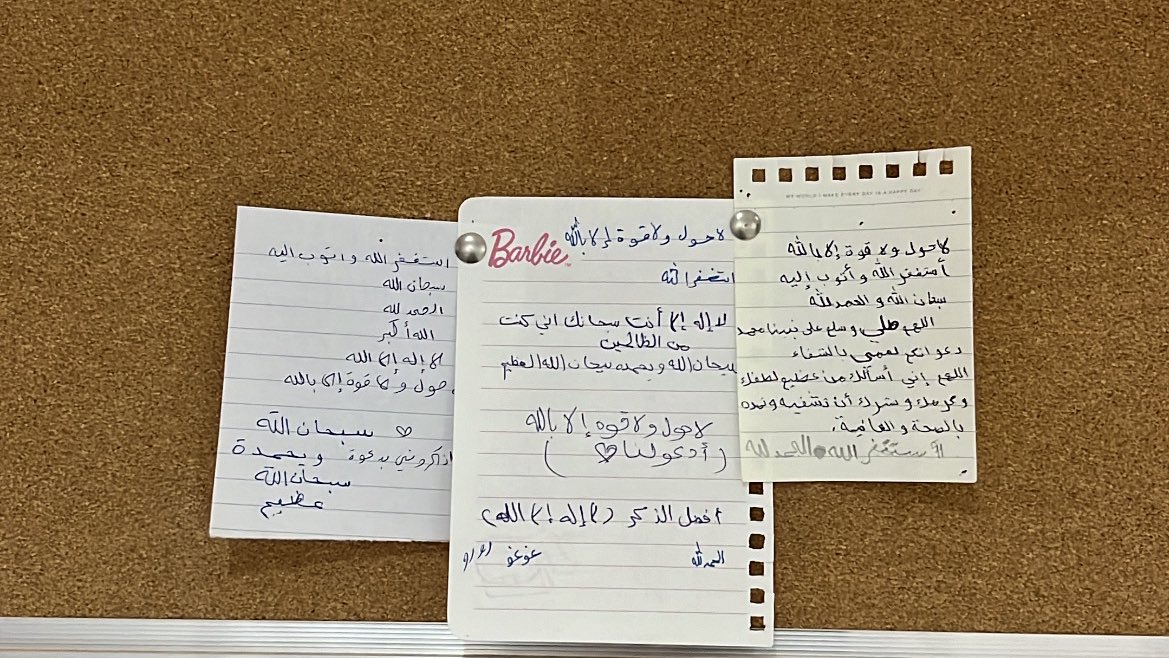 لا حول ولا قوة إلا بالله
أستغفر الله وأتوب إليه
سبحان الله و الحمد لله
اللهم صلي وسلم على نبينا محمد
دعواتكم لعمي بالشفاء
اللهم إني أسألك من عظيم لطفك
وكرمك وسترك أن تشفيه وتمده
بالصحة والعافية.
أستغفر الله الحمد لله
MY WORLD I MAKE EVERY DAY IS A HAPPY DAY
Barbie
لا حول ولا قوة إلا بالله
استغفر الله
لا إله إلا أنت سبحانك اني كنت
من الظالمين
سبحان الله وبحمده سبحان الله العظيم
لا حول ولا قوه إلا بالله
(أدعولنا ♡)
أفضل الذكر (لا إله إلا الله)
الحمد لله
غوغو
استغفر الله واتوب اليه
سبحان الله
الحمد لله
الله أكبر
لا إله إلا الله
حول ولا قوة إلا بالله
سبحان الله ♡
وبحمدة
اذكروني بدعوة
سبحان الله
عظيم